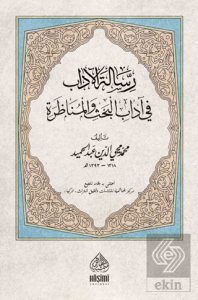 رسالة الآداب
في آداب البحث والمناظرة
تأليف
محمد محيي الدين عبد الحميد
١٣١٨ - ١٣٩٣ هـ
HAŞİMİ
ekin